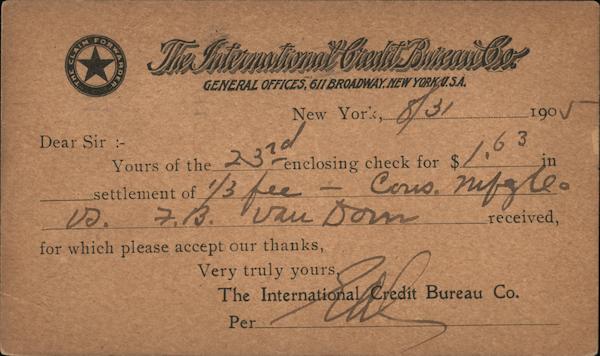 THE CLAIM FORWARDER
The International Credit Bureau Co.
GENERAL OFFICES, 611 BROADWAY, NEW YORK, U.S.A.
New York, 8/31 1905
Dear Sir :-
Yours of the 23rd enclosing check for $ 1.63 in
settlement of 1/3 fee — Cons. Mfg Co.
vs. F.B. Van Dorn received,
for which please accept our thanks,
Very truly yours,
The International Credit Bureau Co.
Per